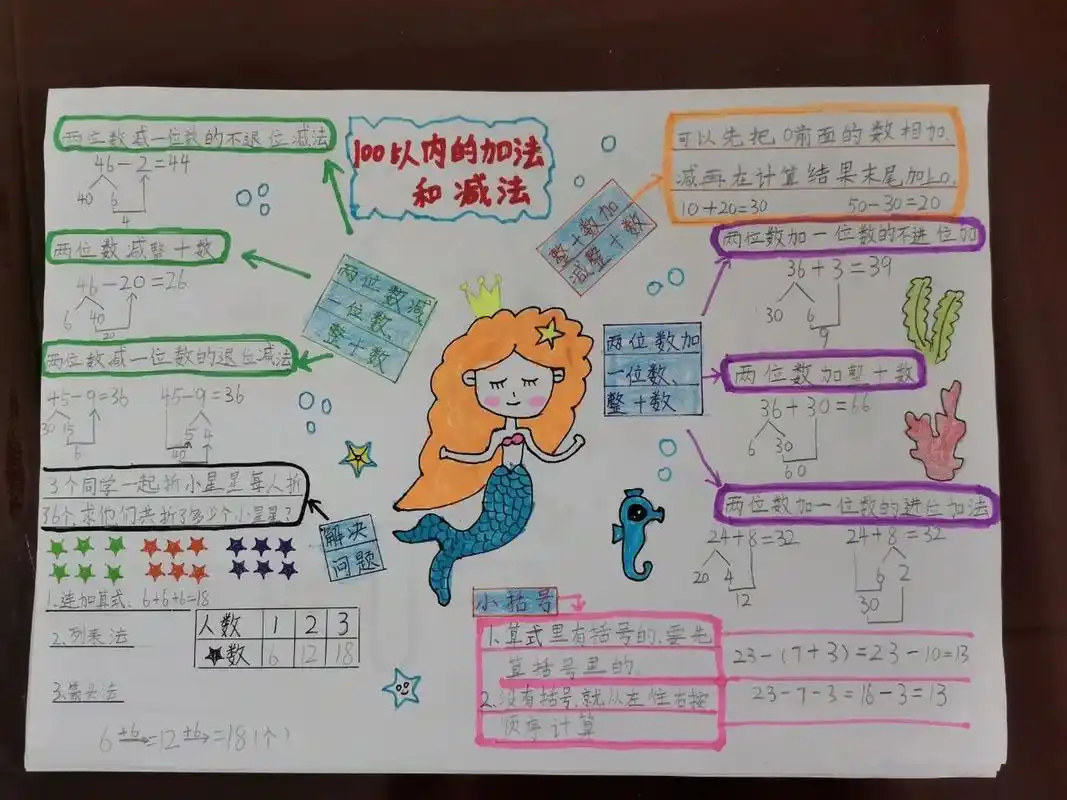 100以内的加法
和减法
两位数减一位数的不退位减法
46-2=44
40 6
4
两位数减整十数
46-20=26
6 40
20
两位数减一位数的退位减法
45-9=36 45-9=36
30 15 5 4
6 40
两位数减
一位数、
整十数
3个同学一起折小星星每人折
36个,求他们共折了多少个小星星?
解决
问题
1.连加算式: 6+6+6=18
2.列表法
人数 1 2 3
数 6 12 18
3.箭头法
6 +6 =12 +6 =18(个)
整十数加
减整十数
可以先把0前面的数相加.
减再在计算结果末尾加上0.
10+20=30 50-30=20
两位数加
一位数、
整十数
两位数加一位数的不进位加
36+3=39
30 6
9
两位数加整十数
36+30=66
6 30
60
两位数加一位数的进位加法
24+8=32 24+8=32
20 4 6 2
12 30
小括号
1.算式里有括号的,要先
算括号里的.
2.没有括号,就从左往右按
顺序计算
23-(7+3)=23-10=13
23-7-3=16-3=13